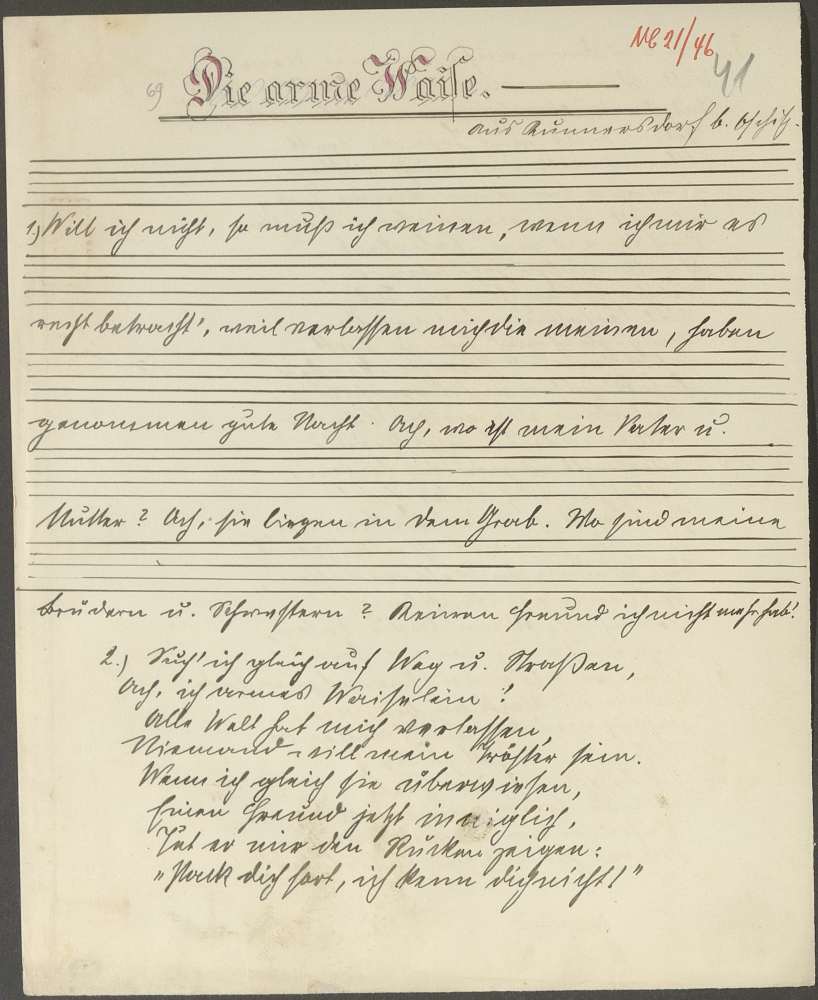 NC 21/46
41
69 Die arme Waise. —
aus Kunnersdorf b.
1.) Will ich nicht, so muß ich weinen, wenn ich mir es
recht betracht', weil verlassen mich die meinen, haben
genommen gute Nacht. Ach, wo ist mein Vater u.
Mutter? Ach, sie liegen in dem Grab. Wo sind meine
Brüdern u. Schwestern? Keinen Freund ich nicht mehr hab'!
2.) Such' ich gleich auf Weg u. Straßen,
Ach, ich armes Waiselein!
Alle Welt hat mich verlassen,
Niemand will mein Tröster sein.
Wenn ich gleich sie
Einen Freund jetzt inniglich,
Tut er mir den Rücken zeigen:
„Pack dich fort, ich kenn dich nicht!"